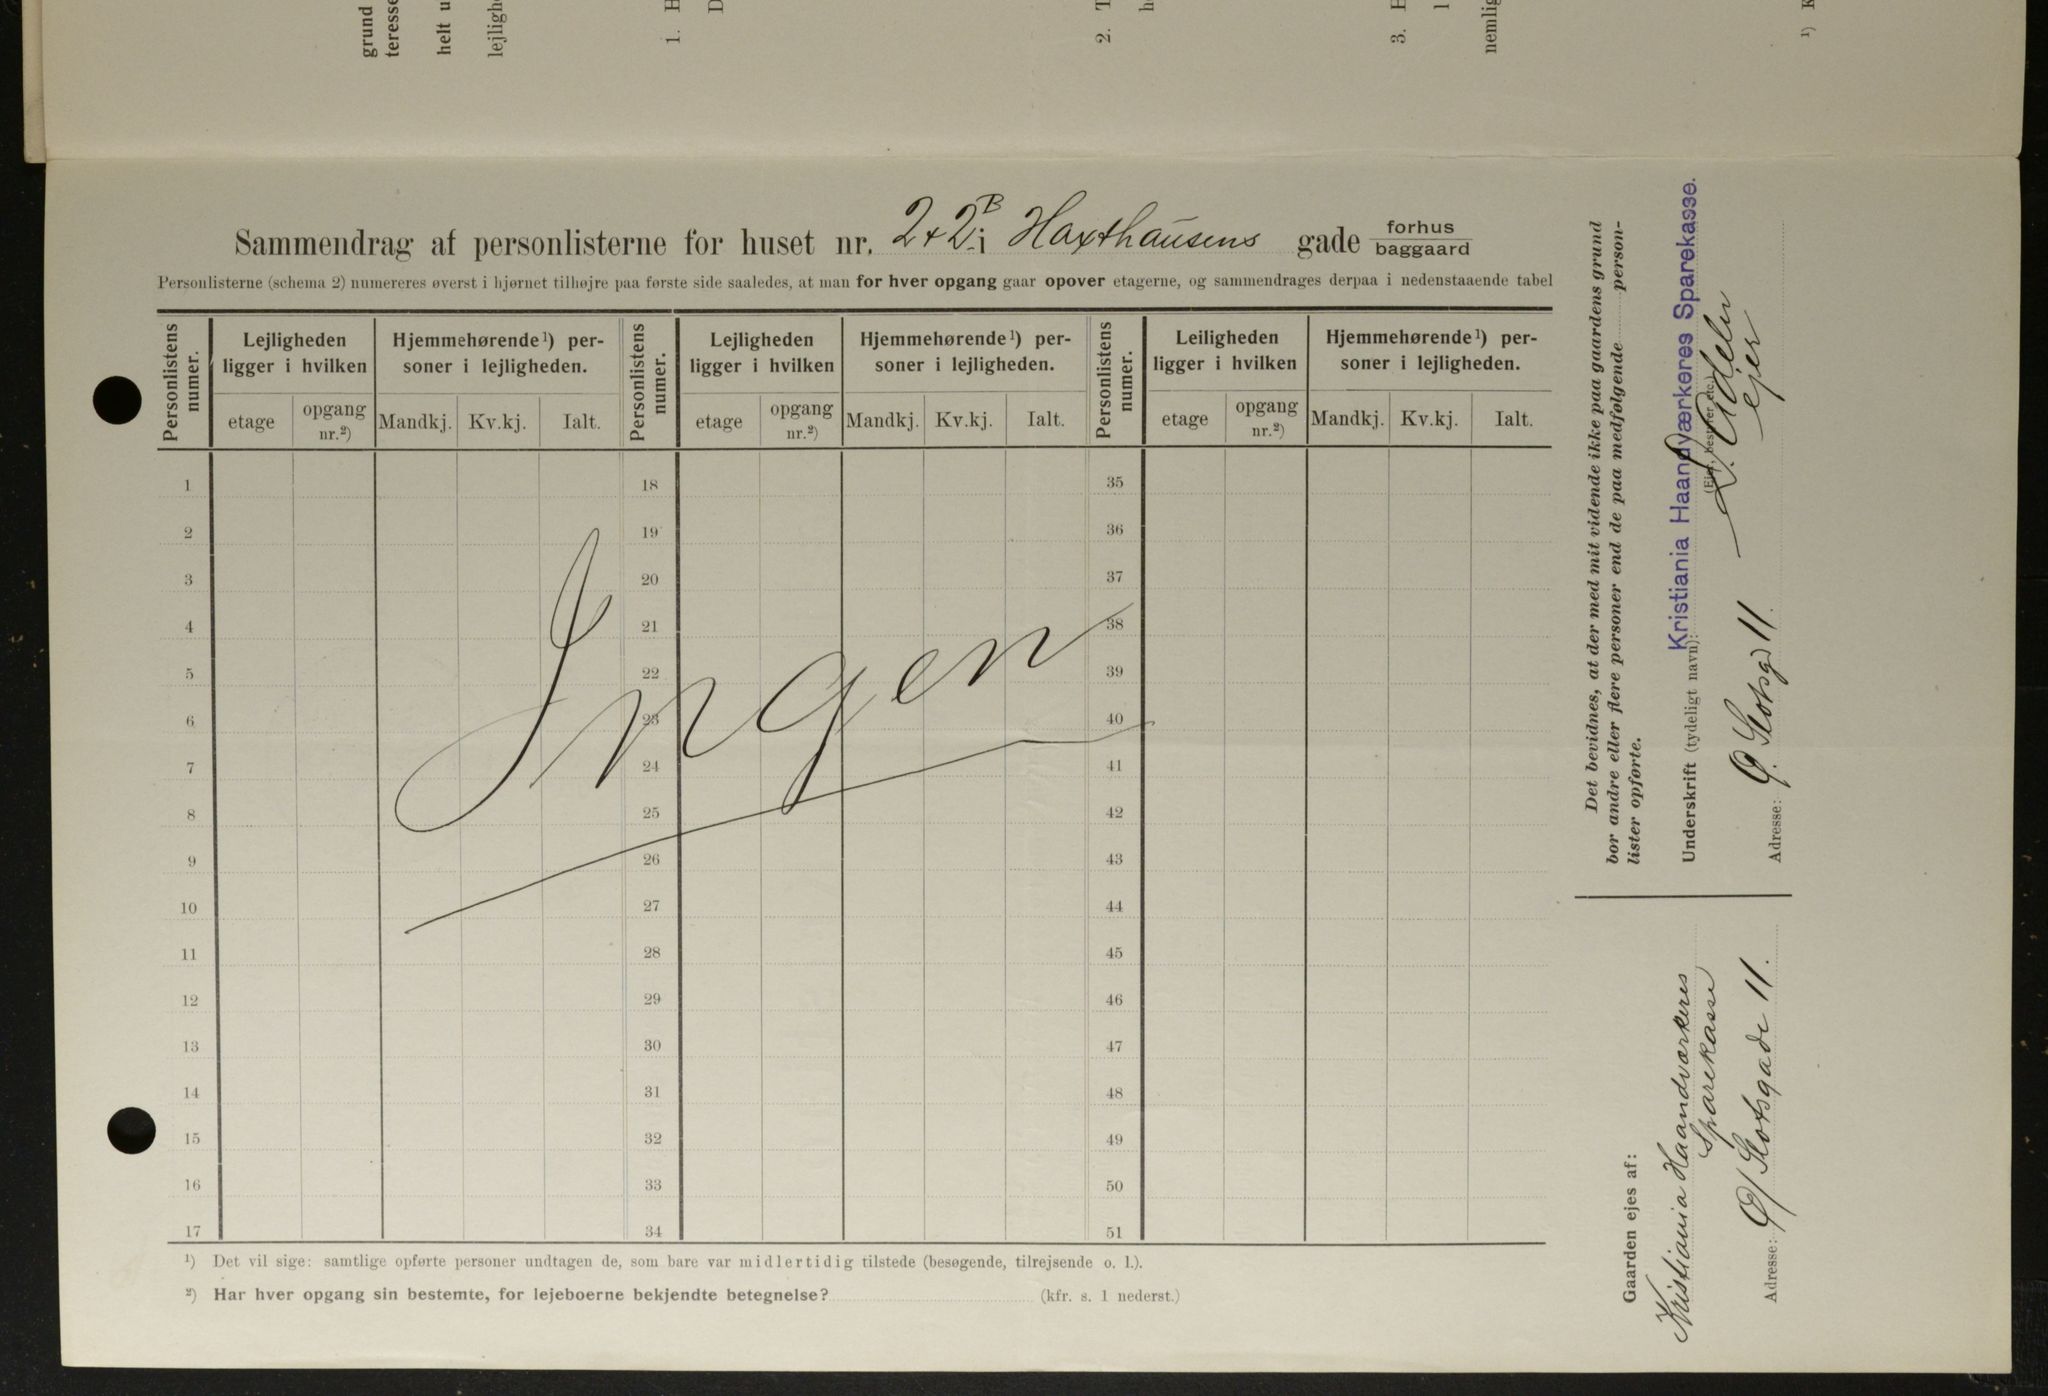 grund
teresse
helt u
lejlighe
1. H
D
2. T
h
3. H
l
nemlig
¹) K
Sammendrag af personlisterne for huset nr. 2 + 2B i Haxthausens gade forhus
baggaard
Personlisterne (schema 2) numereres øverst i hjørnet tilhøjre paa første side saaledes, at man for hver opgang gaar opover etagerne, og sammendrages derpaa i nedenstaaende tabel
Personlistens numer.
Lejligheden ligger i hvilken
Hjemmehørende¹) personer i lejligheden.
Personlistens numer.
Lejligheden ligger i hvilken
Hjemmehørende¹) personer i lejligheden.
Personlistens numer.
Leiligheden ligger i hvilken
Hjemmehørende¹) personer i lejligheden.
etage opgang nr.²) Mandkj. Kv.kj. Ialt. etage opgang nr.²) Mandkj. Kv.kj. Ialt. etage opgang nr.²) Mandkj. Kv.kj. Ialt.
1 18 35
2 19 36
3 20 37
4 21 38
5 22 39
6 23 40
7 24 41
8 25 42
9 26 43
10 27 44
11 28 45
12 29 46
13 30 47
14 31 48
15 32 49
16 33 50
17 34 51
Ingen
¹) Det vil sige: samtlige opførte personer undtagen de, som bare var midlertidig tilstede (besøgende, tilrejsende o. l.).
²) Har hver opgang sin bestemte, for lejeboerne bekjendte betegnelse? (kfr. s. 1 nederst.)
Det bevidnes, at der med mit vidende ikke paa gaardens grund
bor andre eller flere personer end de paa medfølgende person-
lister opførte.
Kristiania Haandværkeres Sparekasse.
Underskrift (tydeligt navn):
(Ejer, bestyrer etc.)
ejer
Adresse: Ø. Slotsgd 11.
Gaarden ejes af:
Kristiania Haandværkeres
Sparekasse
Adresse: Ø/Slotsgade 11.